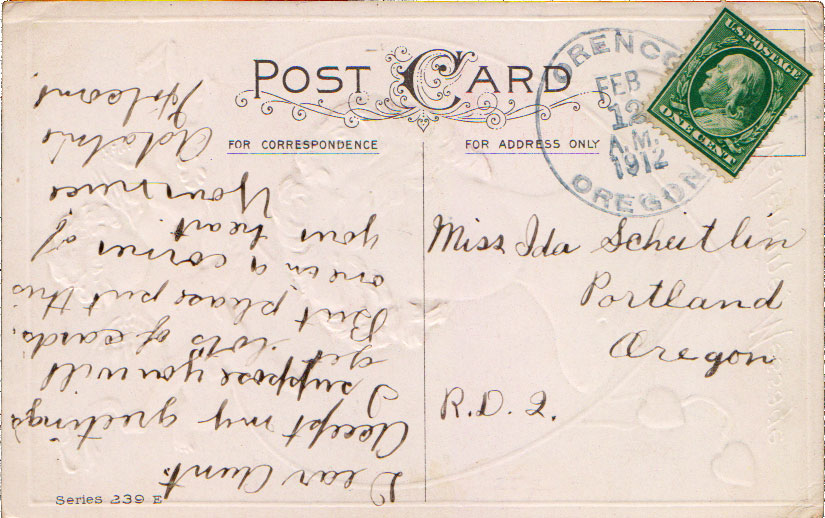 POST CARD
FOR CORRESPONDENCE
FOR ADDRESS ONLY
U.S. POSTAGE
ONE CENT
FEB
12
A.M.
1912
OREGON
Miss Ida Scheitlin
Portland
Oregon
R.D. 2.
Dear Aunt.
Accept my greetings
I suppose you will
get lots of cards.
But please put this
one in a corner of
your heart.
Your niece
Series 239 E